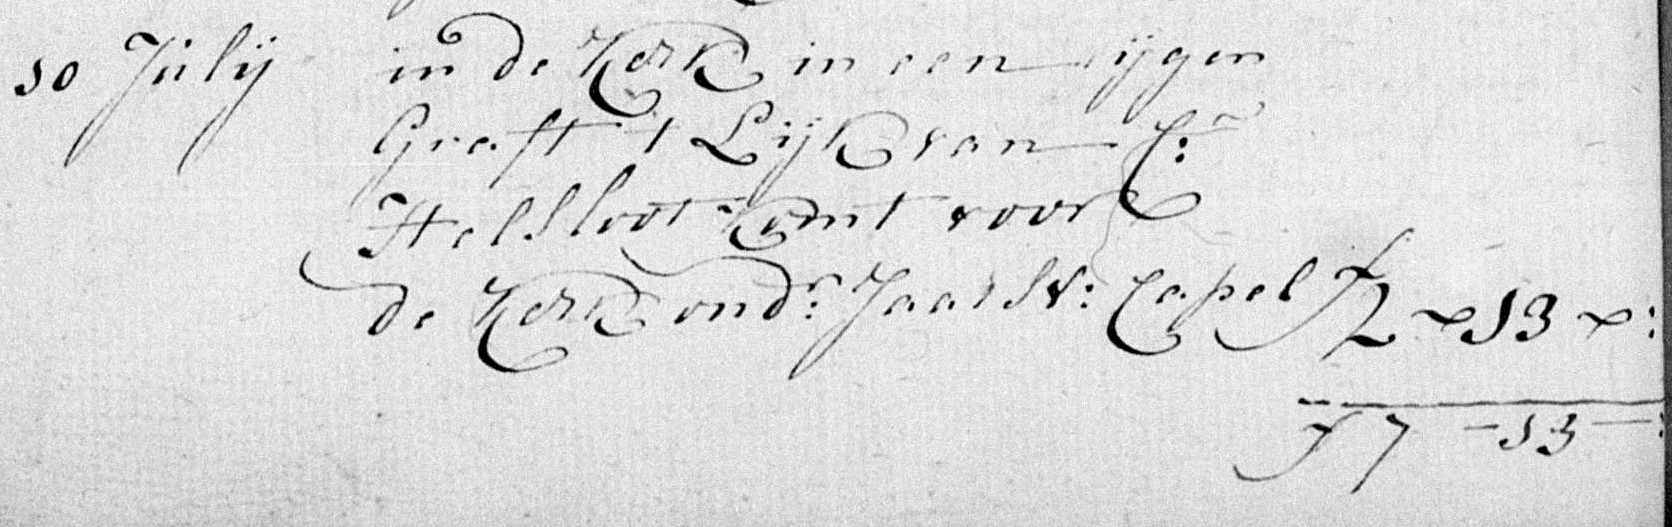 10 Julij in de Kerk in een eijgen
Graft t Lijk van C:
Helsloot komt voor
de Kerk ondr: Jaar V: Capel f 2 - 13 -:
f 7 - 13 - :